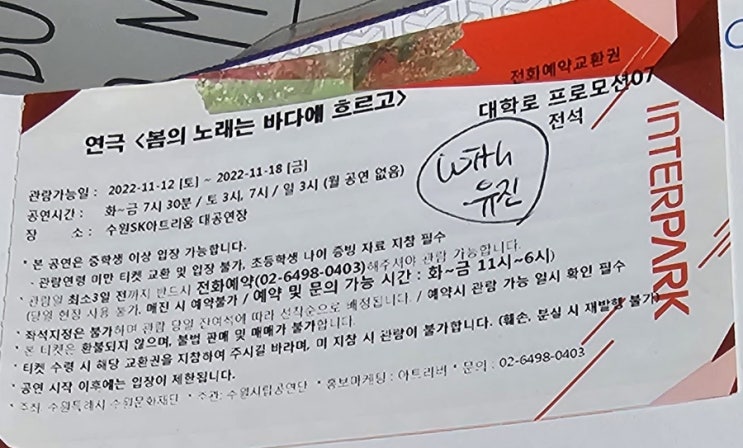 전화예약교환권
연극 <봄의 노래는 바다에 흐르고>
대학로 프로모션07
전석
with
유진
INTERPARK
관람가능일 : 2022-11-12 [토] ~ 2022-11-18 [금]
공연시간 : 화~금 7시 30분 / 토 3시, 7시 / 일 3시 (월 공연 없음)
장 소 : 수원SK아트리움 대공연장
* 본 공연은 중학생 이상 입장 가능합니다.
- 관람연령 미만 티켓 교환 및 입장 불가, 초등학생 나이 증빙 자료 지참 필수
* 관람일 최소3일 전까지 반드시 전화예약(02-6498-0403)해주셔야 관람 가능합니다.
(당일 현장 사용 불가, 매진 시 예약불가 / 예약 및 문의 가능 시간 : 화~금 11시~6시)
* 좌석지정은 불가하며 관람 당일 잔여석에 따라 선착순으로 배정됩니다. / 예약시 관람 가능 일시 확인 필수
* 본 티켓은 환불되지 않으며, 불법 판매 및 매매가 불가합니다.
* 티켓 수령 시 해당 교환권을 지참하여 주시길 바라며, 미 지참 시 관람이 불가합니다. (훼손, 분실 시 재발행 불가)
* 공연 시작 이후에는 입장이 제한됩니다.
* 주최: 수원특례시 수원문화재단 * 주관: 수원시립공연단 * 홍보마케팅 : 아트리버 * 문의 : 02-6498-0403